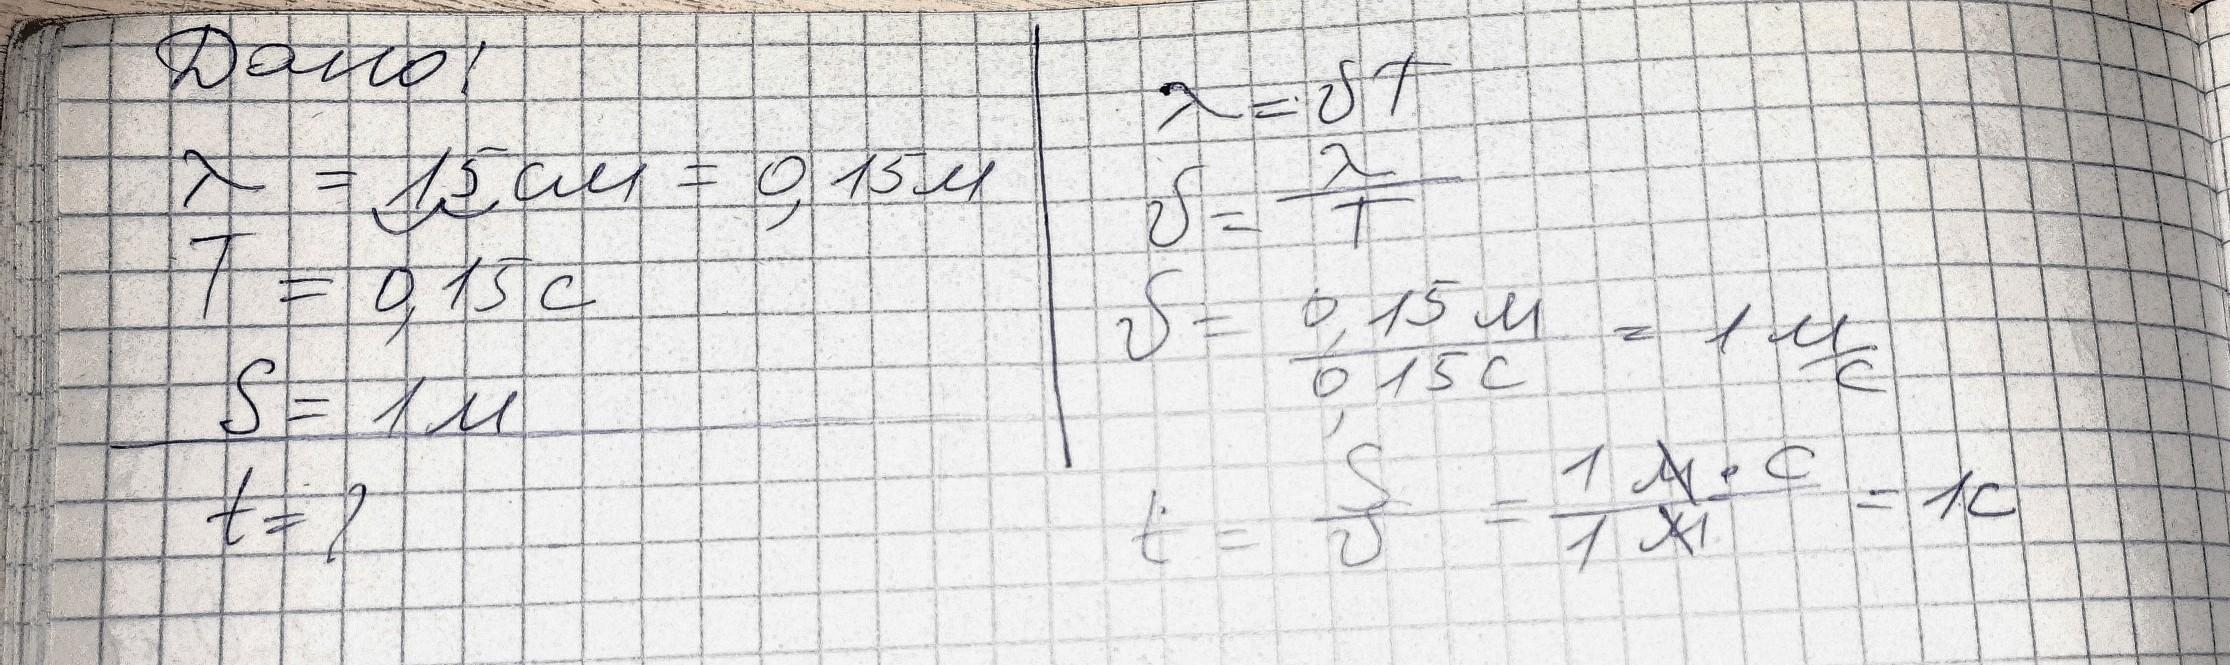 Дано:
λ = 15 см = 0,15 м
T = 0,15 с
S = 1 м
t = ?
λ = υT
υ = λ/T
υ = 0,15 м / 0,15 с = 1 м/с
t = S/υ = 1 м · с / 1 м = 1 с